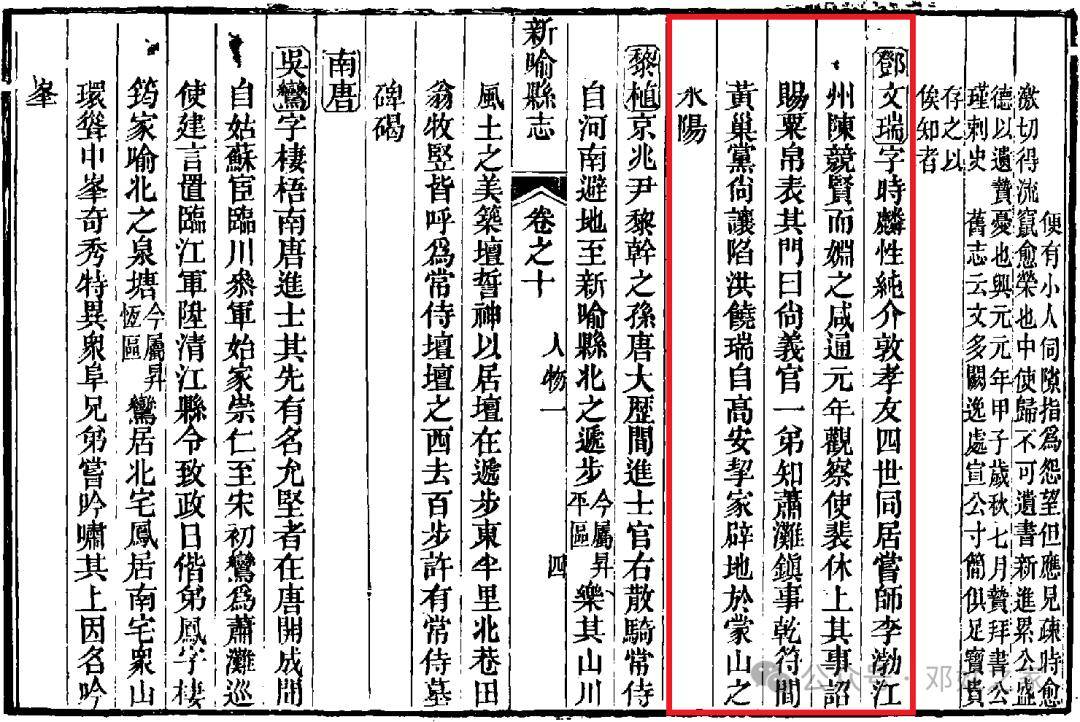 便有小人伺隙指為怨望但應兄疎時愈
激切得流竄愈榮也中使歸不可遺書新進累公盛
德以遺贊憂也興元元年甲子歲秋七月贊拜書公
瑾刺史　舊志云文多闕逸處宣公寸簡俱足寶貴
存之以
俟知者
鄧文瑞字時麟性純介敦孝友四世同居嘗師李渤江
州陳競賢而婣之咸通元年觀察使裴休上其事詔
賜粟帛表其門曰尙義官一弟知蕭灘鎮事乾符間
黃巢黨尙讓陷洪饒瑞自高安挈家辟地於蒙山之
水陽
黎植京兆尹黎幹之孫唐大歷間進士官右散騎常侍
自河南避地至新喻縣北之遞步今屬昇平區樂其山川
新喻縣志　卷之十　人物一　四
風土之美築壇誓神以居壇在遞步東半里北巷田
翁牧豎皆呼為常侍壇壇之西去百步許有常侍墓
碑碣
南唐
吳鸞字棲梧南唐進士其先有名允堅者在唐開成間
自姑蘇宦臨川叅軍始家崇仁至宋初鸞為蕭灘巡
使建言置臨江軍陞清江縣令致政日偕弟鳳字棲
筠家喻北之泉塘今屬昇恆區鸞居北宅鳳居南宅衆山
環聳中峯奇秀特異衆阜兄弟嘗吟嘯其上因名吟
峯
公众号 · 邓姓之家